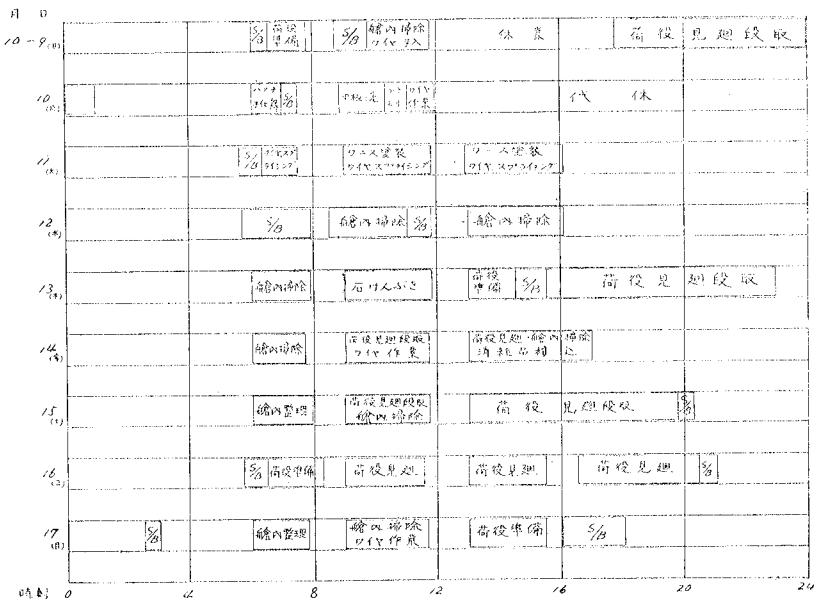 月 日
10-9(日) S/B 荷役準備 S/B 艙内掃除 ワイヤ手入 休業 荷役見廻段取
10 S/B 作業 代休
11(火) S/B ワース塗装 ワイヤスプライシング ワース塗装 ワイヤスプライシング
12(水) S/B 艙内掃除 S/B 艙内掃除
13(木) 艙内掃除 石けんぶき 荷役準備 S/B 荷役見廻段取
14(金) 艙内掃除 荷役見廻段取 ワイヤ作業 荷役見廻・艙内掃除 消耗品積込
15(土) 艙内整理 荷役見廻段取 艙内掃除 荷役見廻段取 S/B
16 S/B 荷役準備 荷役見廻 荷役見廻 荷役見廻 S/B
17 S/B 艙内整理 艙内掃除 ワイヤ作業 荷役準備 S/B
時刻 0 4 8 12 16 20 24